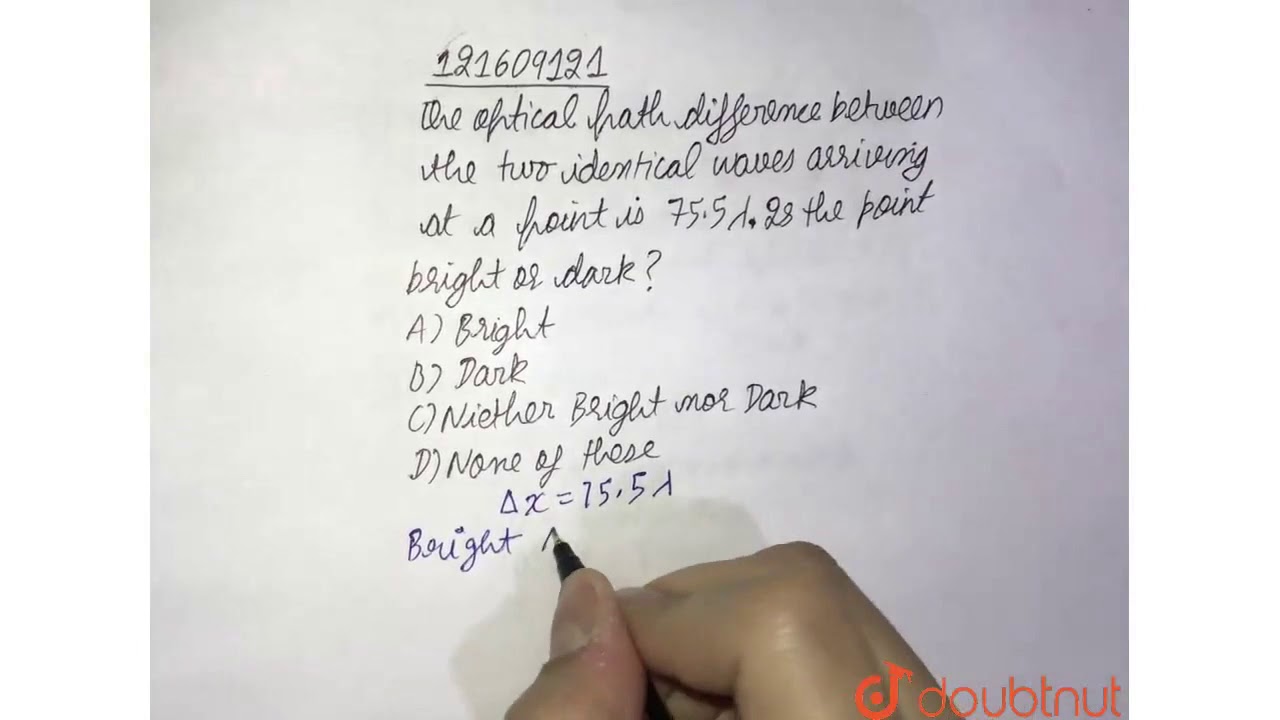 121609121
the optical path difference between
the two identical waves arriving
at a point is 75.5λ. Is the point
bright or dark?
A) Bright
B) Dark
C) Niether Bright nor Dark
D) None of these
Δx = 75.5λ
Bright
doubtnut